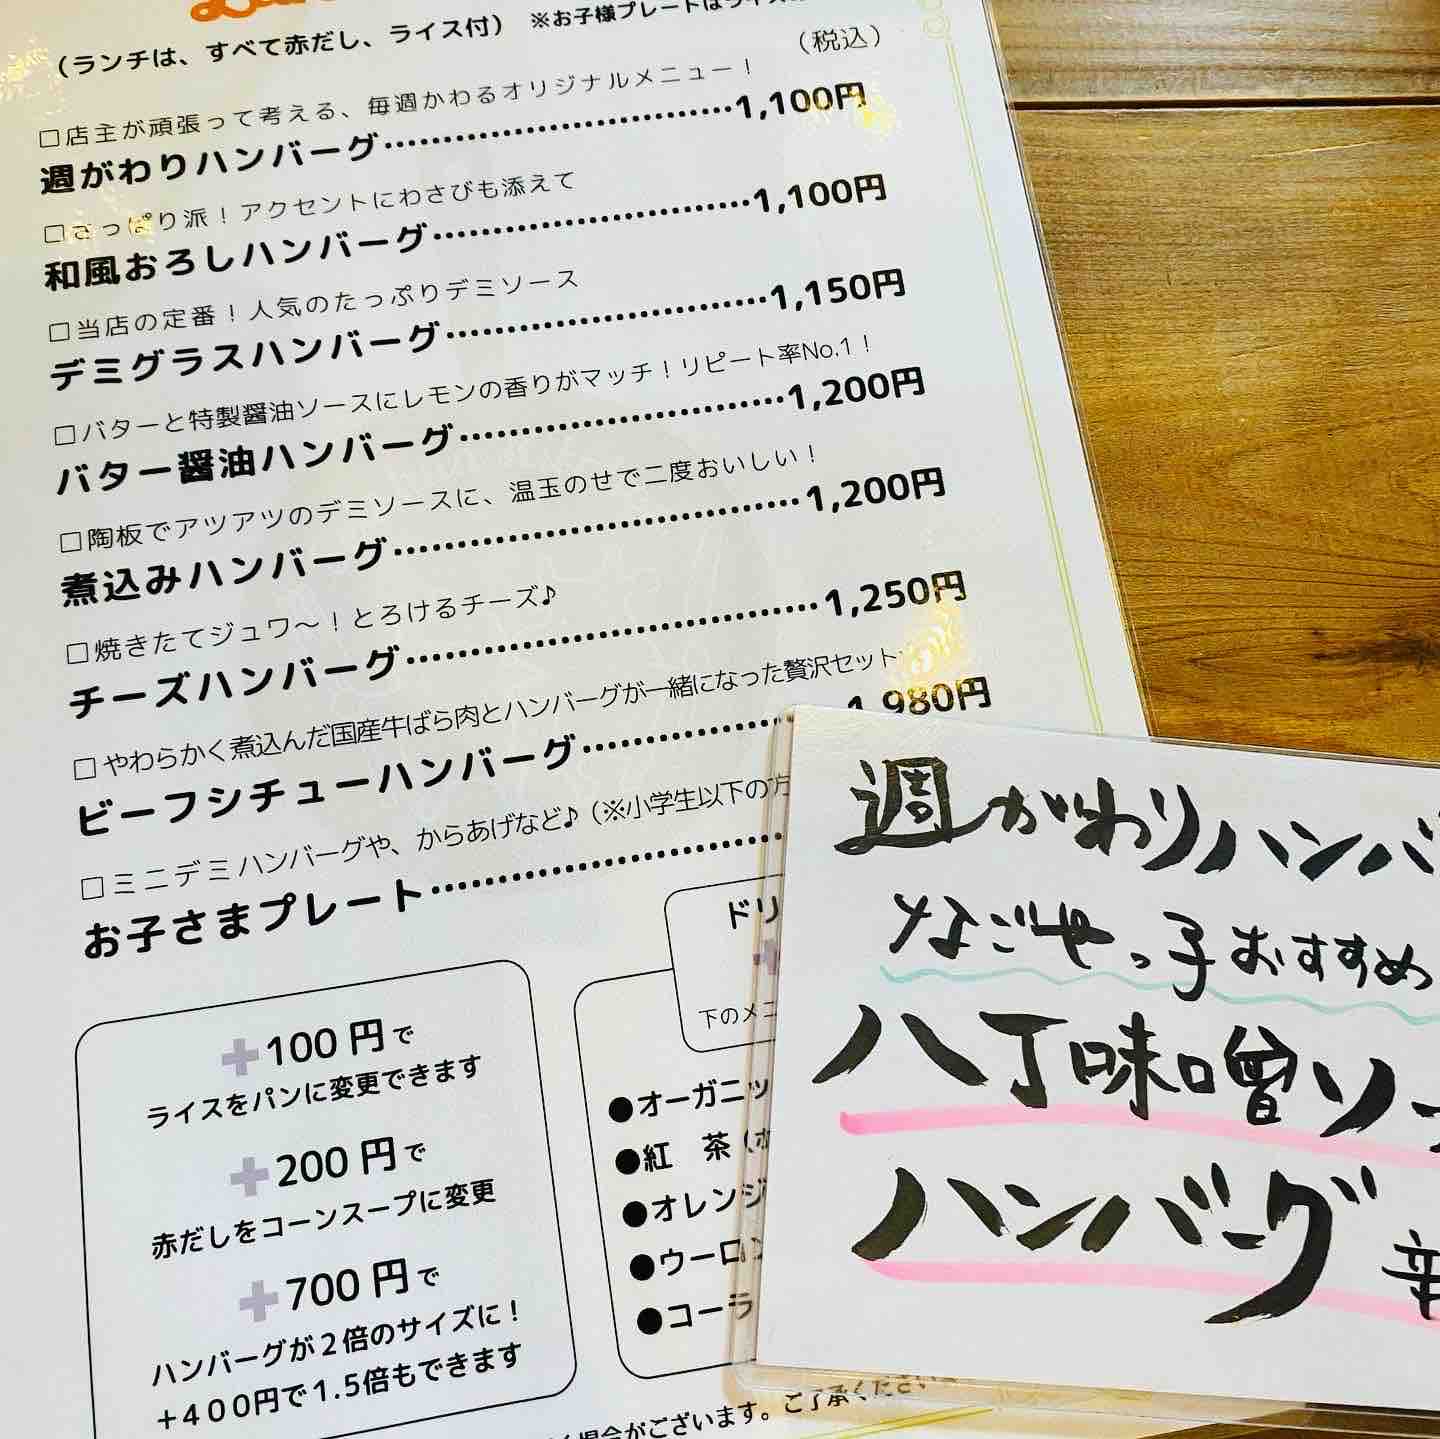 (ランチは、すべて赤だし、ライス付) ※お子様プレートは
(税込)
□店主が頑張って考える、毎週かわるオリジナルメニュー！
週がわりハンバーグ…………………………1,100円
□さっぱり派！アクセントにわさびも添えて
和風おろしハンバーグ…………………………1,100円
□当店の定番！人気のたっぷりデミソース
デミグラスハンバーグ…………………………1,150円
□バターと特製醤油ソースにレモンの香りがマッチ！リピート率No.1！
バター醤油ハンバーグ…………………………1,200円
□陶板でアツアツのデミソースに、温玉のせで二度おいしい！
煮込みハンバーグ…………………………1,200円
□焼きたてジュワ〜！とろけるチーズ♪
チーズハンバーグ…………………………1,250円
□やわらかく煮込んだ国産牛ばら肉とハンバーグが一緒になった贅沢セット
ビーフシチューハンバーグ………………1,980円
□ミニデミハンバーグや、からあげなど♪(※小学生以下の方
お子さまプレート…………………………
+100円で
ライスをパンに変更できます
+200円で
赤だしをコーンスープに変更
+700円で
ハンバーグが２倍のサイズに！
+４００円で1.5倍もできます
ドリ
+
下のメニ
●オーガニッ
●紅　茶
●オレンジ
●ウーロン
●コーラ
場合がございます。ご了承ください
週がわりハンバ
なごやっ子おすすめ
八丁味噌ソー
ハンバーグ